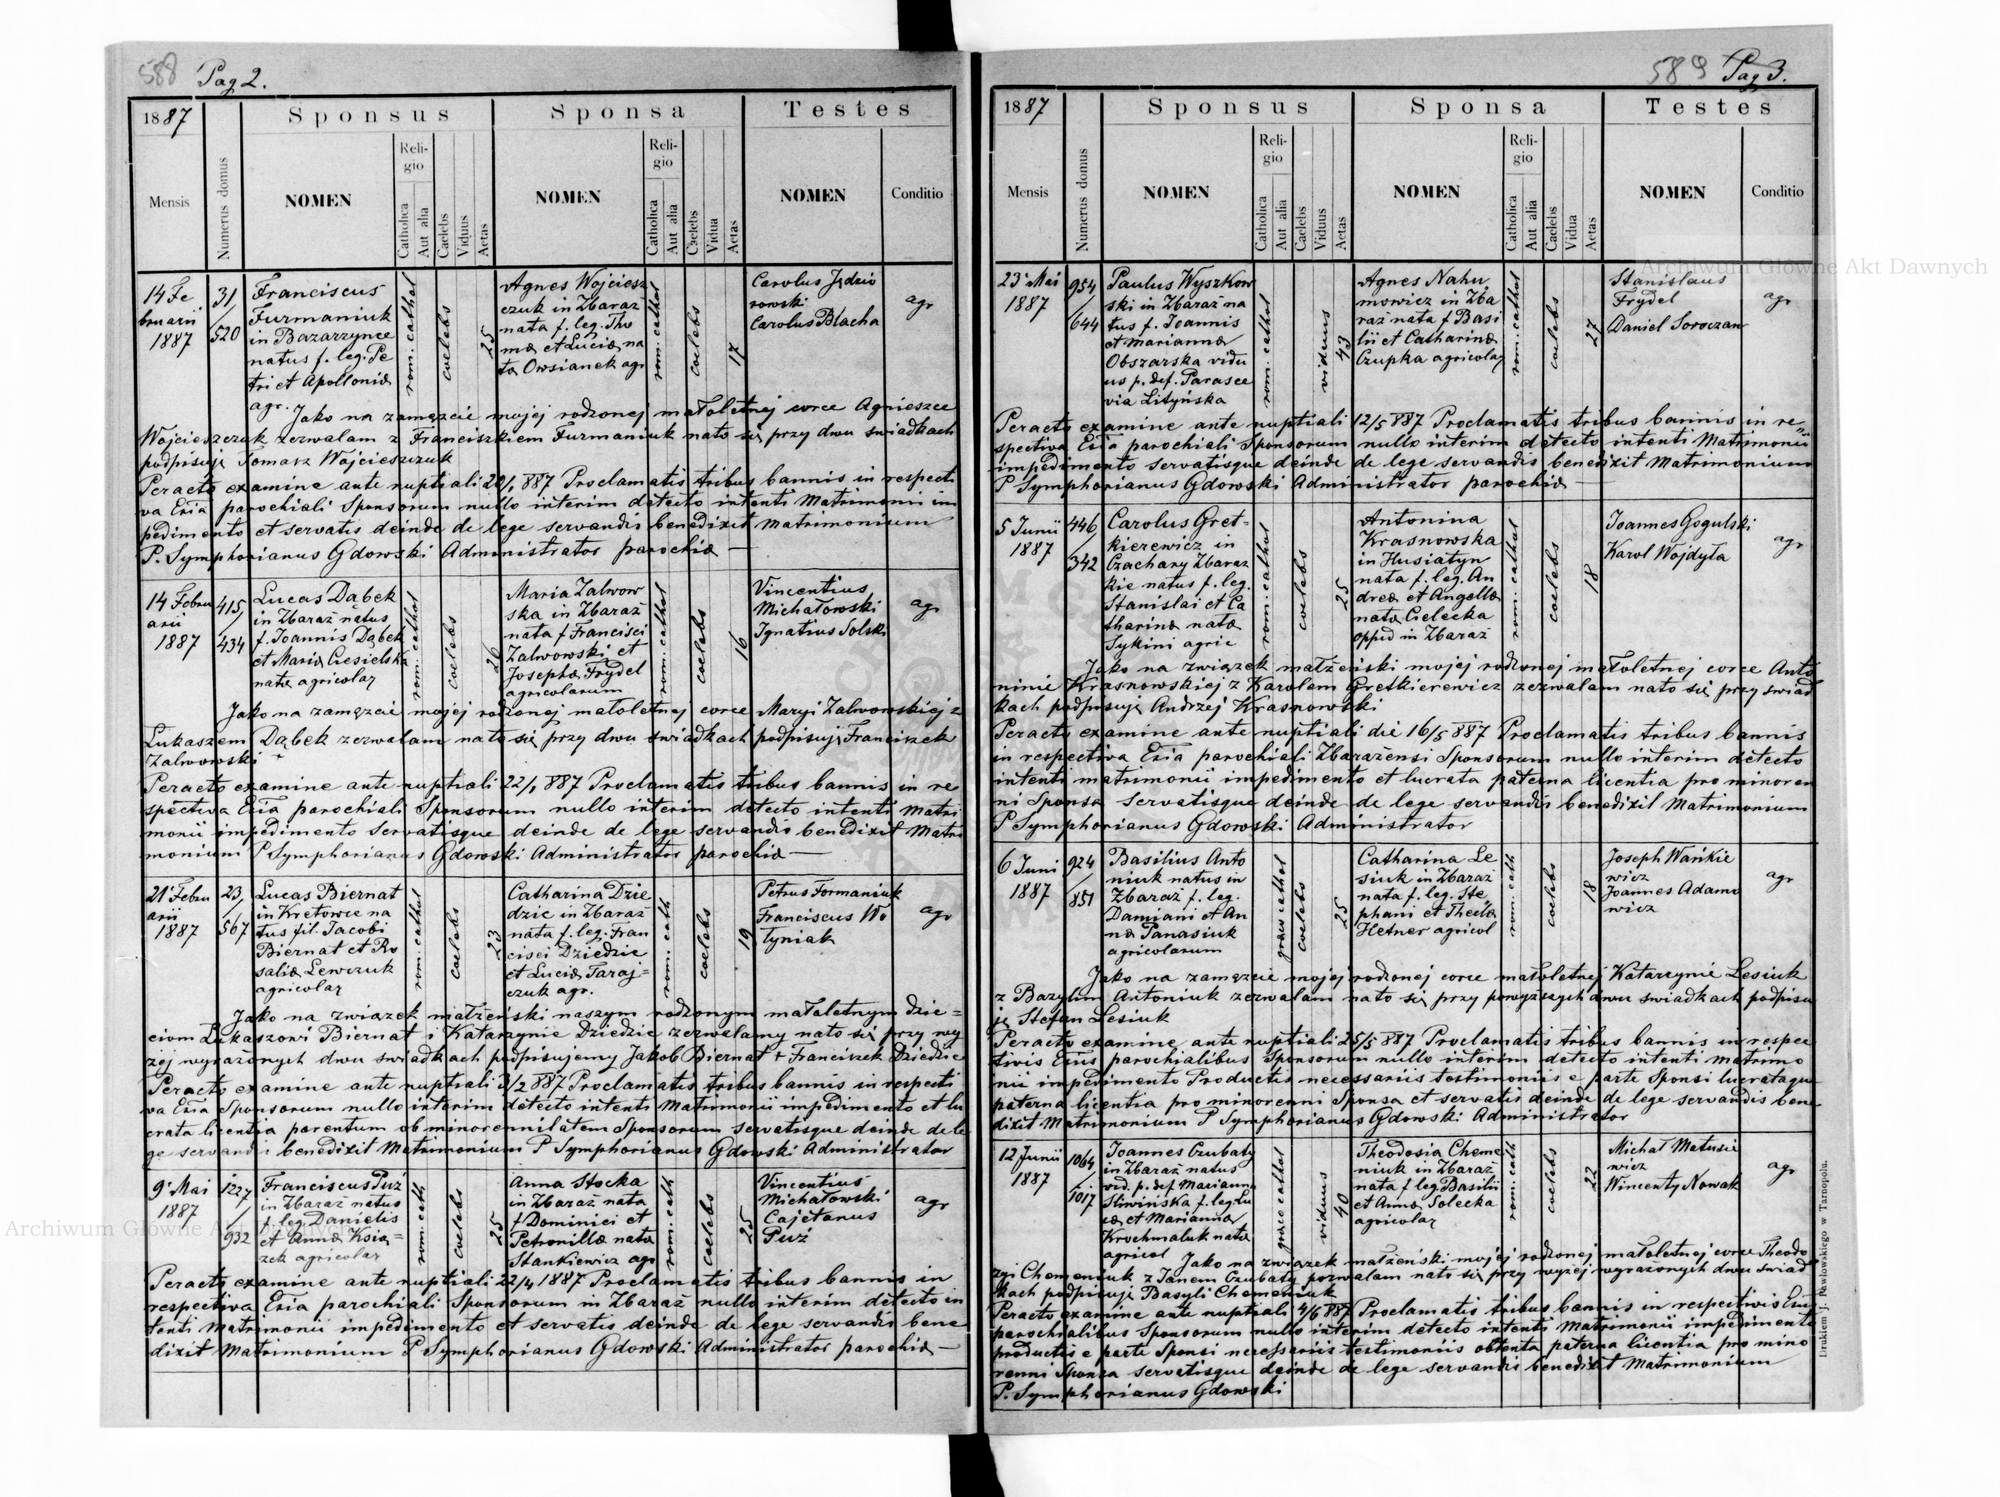 588 Pag 2.
1887
Sponsus
Sponsa
Testes
Mensis
Numerus domus
NOMEN
Religio
Catholica
Aut alia
Caelebs
Viduus
Aetas
NOMEN
Religio
Catholica
Aut alia
Caelebs
Vidua
Aetas
NOMEN
Conditio
14 Fe
bruarii
1887
31/
520
Franciscus
Furmaniuk
in Bazarzynce
natus f. leg. Pe
tri et Apolloniæ
agr.
rom: cathol
coelebs
25
Agnes Wojciesz
czuk in Zbaraż
nata f. leg. Tho
mæ et Luciæ na
tæ Owsianek agr
rom: cathol
coelebs
17
Carolus Jędrio
rowski
Carolus Blacha
agr
Jako na zamęzcie mojej rodzonej małoletnej corce Agnieszce
Wojcieszczuk zezwalam z Franciszkiem Furmaniuk nato się przy dwu swiadkach
podpisuję Tomasz Wojcieszczuk
Peracto examine ante nuptiali 22/1 887 Proclamatis tribus bannis in respecti
va Ecia parochiali Sponsorum nullo interim detecto intenti Matrimonii im
pedimento et servatis deinde de lege servandis benedixit Matrimonium
P. Symphorianus Gdowski Administrator parochiæ —
14 Febru
arii
1887
415/
434
Lucas Dąbek
in Zbaraż natus
f. Joannis Dąbek
et Mariæ Ciesielska
natæ agricolar
rom: cathol
coelebs
26
Maria Zalwow
ska in Zbaraż
nata f Francisci
Zalwowski et
Josephæ Frydel
agricolarum
rom: cathol
coelebs
16
Vincentius
Michałowski
Ignatius Solski
agr
Jako na zamęzcie mojej rodzonej małoletnej corce Maryi Zalwowskiej z
Lukaszem Dąbek zezwalam nato się przy dwu swiadkach podpisuję Franciszek
Zalwowski +
Peracto examine ante nuptiali 22/1 887 Proclamatis tribus bannis in re
spectiva Ecia parochiali Sponsorum nullo interim detecto intenti Matri
monii impedimento servatisque deinde de lege servandis benedixit Matri
monium P Symphorianus Gdowski Administrator parochiæ —
21 Febru
arii
1887
23/
567
Lucas Biernat
in Kretowce na
tus fil. Jacobi
Biernat et Ro
saliæ Lewczuk
agricolar
rom: cathol
coelebs
23
Catharina Dzie
dzic in Zbaraż
nata f. leg. Fran
cisci Dziedzic
et Luciæ Taraj=
czuk agr.
rom: cath
coelebs
19
Petrus Formaniuk
Franciscus Wo
tyniak
agr
Jako na związek małżeński naszym rodzonym małoletnym dzie=
ciom Łukaszowi Biernat i Katarzynie Dziedzic zezwalamy nato się przy wy
żej wyrażonych dwu swiadkach podpisujemy Jakob Biernat + Franciszek Dziedzic
Peracto examine ante nuptiali 3/2 887 Proclamatis tribus bannis in respecti
va Ecia Sponsorum nullo interim detecto intenti Matrimonii impedimento et lu
crata licentia parentum ob minorennitatem Sponsorum servatisque deinde de le
ge servandi benedixit Matrimonium P Symphorianus Gdowski Administrator
9 Mai
1887
1227/
932
Franciscus Puz
in Zbaraż natus
f. leg. Danielis
et Annæ Ksią=
zek agricolar
rom: cath
coelebs
25
Anna Stocka
in Zbaraż nata
f Dominici et
Petronillæ natæ
Stankiewicz agr
rom: cath
coelebs
25
Vincentius
Michałowski
Cajetanus
Puz
agr
Peracto examine ante nuptiali 22/4 1887 Proclamatis tribus bannis in
respectiva Ecia parochiali Sponsorum in Zbaraż nullo interim detecto in
tenti Matrimonii impedimento et servatis deinde de lege servandis bene
dixit Matrimonium P Symphorianus Gdowski Administrator parochiæ —
589 Pag 3.
1887
Sponsus
Sponsa
Testes
Mensis
Numerus domus
NOMEN
Religio
Catholica
Aut alia
Caelebs
Viduus
Aetas
NOMEN
Religio
Catholica
Aut alia
Caelebs
Vidua
Aetas
NOMEN
Conditio
23 Mai
1887
954
/
644
Paulus Wyszkow
ski in Zbaraż na
tus f. Joannis
et Mariannæ
Obszarska vidu
us p. def. Parasce
via Lityńska
rom: cathol
viduus
43
Agnes Nahu
mowicz in Zba
raż nata f Basi
lii et Catharinæ
Czupka agricolar
rom: cathol
coelebs
27
Stanislaus
Frydel
Daniel Soroczan
agr
Peracto examine ante nuptiali 12/5 887 Proclamatis tribus bannis in re=
spectiva Ecia parochiali Sponsorum nullo interim detecto intenti Matrimonii
impedimento servatisque deinde de lege servandis benedixit Matrimonium
P Symphorianus Gdowski Administrator parochiæ —
5 Junii
1887
446/
342
Carolus Gret-
kierewicz in
Czachary Zbaraz
kie natus f. leg.
Stanislai et Ca
tharinæ natæ
Sykini agric
rom: cathol
coelebs
25
Antonina
Krasnowska
in Husiatyn
nata f. leg. An
dreæ et Angellæ
natæ Cielecka
oppid in Zbaraż
rom: cathol
coelebs
18
Joannes Gogulski
Karol Wojdyła
agr
Jako na związek małżeński mojej rodzonej małoletnej corce Anto
ninie Krasnowskiej z Karolem Gretkierewicz zezwalam nato się przy swiad
kach podpisuję Andrzej Krasnowski
Peracto examine ante nuptiali die 16/5 887 Proclamatis tribus bannis
in respectiva Ecia parochiali Zbarażensi Sponsorum nullo interim detecto
intenti matrimonii impedimento et lucrata paterna licentia pro minoren
ni Sponsa servatisque deinde de lege servandis benedixit Matrimonium
P Symphorianus Gdowski Administrator
6 Juni
1887
924
/
851
Basilius Anto
niuk natus in
Zbaraż f. leg.
Damiani et An
næ Panasiuk
agricolarum
græc cathol
coelebs
25
Catharina Le
siuk in Zbaraż
nata f. leg. Ste
phani et Theclæ
Hetner agricol
rom: cath
coelebs
18
Joseph Wańkie
wicz
Joannes Adamo
wicz
agr
Jako na zamęzcie mojej rodzonej corce małoletnej Katarzynie Lesiuk
z Bazylim Antoniuk zezwalam nato się przy powyższych dwu swiadkach podpisu
ję Stefan Lesiuk
Peracto examine ante nuptiali 25/5 887 Proclamatis tribus bannis in respec
tivis Eciis parochialibus Sponsorum nullo interim detecto intenti matrimo
nii impedimento Productis necessariis testimoniis e parte Sponsi lucrataque
paterna licentia pro minorenni Sponsa et servatis deinde de lege servandis bene
dixit Matrimonium P Symphorianus Gdowski Administrator
12 Junii
1887
1064
/
1017
Joannes Czubaty
in Zbaraż natus
vid. p. def Marianna
Sliwińska f. leg. Lu
cæ et Mariannæ
Krochmaluk natæ
agricol
græc cathol
viduus
40
Theodosia Cheme
niuk in Zbaraż
nata f leg Basilii
et Annæ Solecka
agricolar
rom: cath
coelebs
22
Michał Matusie
wicz
Wincenty Nowak
agr
Jako na związek małżeński mojej rodzonej małoletnej corce Theodo
zyi Chemeniuk z Janem Czubaty pozwalam nato się przy wyżej wyrażonych dwu swiad
kach podpisuję Basyli Chemeniuk
Peracto examine ante nuptiali 4/6 887 Proclamatis tribus bannis in respectivis Eciis
parochialibus Sponsorum nullo interim detecto intenti Matrimonii impedimento
productis e parte Sponsi necessariis testimoniis obtenta paterna licentia pro mino
renni Sponsa servatisque deinde de lege servandis benedixit Matrimonium
P. Symphorianus Gdowski
Drukiem J. Pawłowskiego w Tarnopolu.
Archiwum Główne Akt Dawnych
Archiwum Główne Akt Dawnych